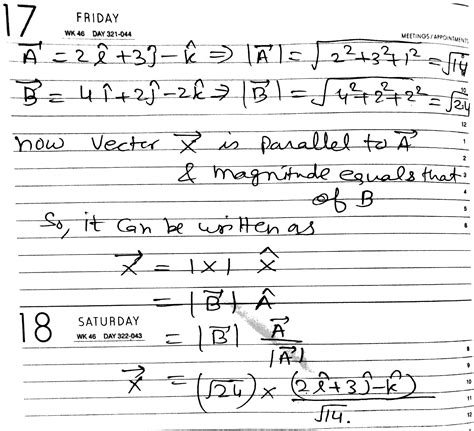 17 FRIDAY
WK 46 DAY 321-044
MEETINGS/APPOINTMENTS
A⃗ = 2î + 3ĵ - k̂ ⇒ |A⃗| = √(2²+3²+1²) = √14
B⃗ = 4î + 2ĵ - 2k̂ ⇒ |B⃗| = √(4²+2²+2²) = √24
now Vector X⃗ is parallel to A⃗
& magnitude equals that
of B
So, it can be written as
X⃗ = |X| X̂
= |B⃗| Â
18 SATURDAY
WK 46 DAY 322-043
= |B⃗| A⃗/|A⃗|
X⃗ = (√24) × (2î+3ĵ-k̂)/√14.